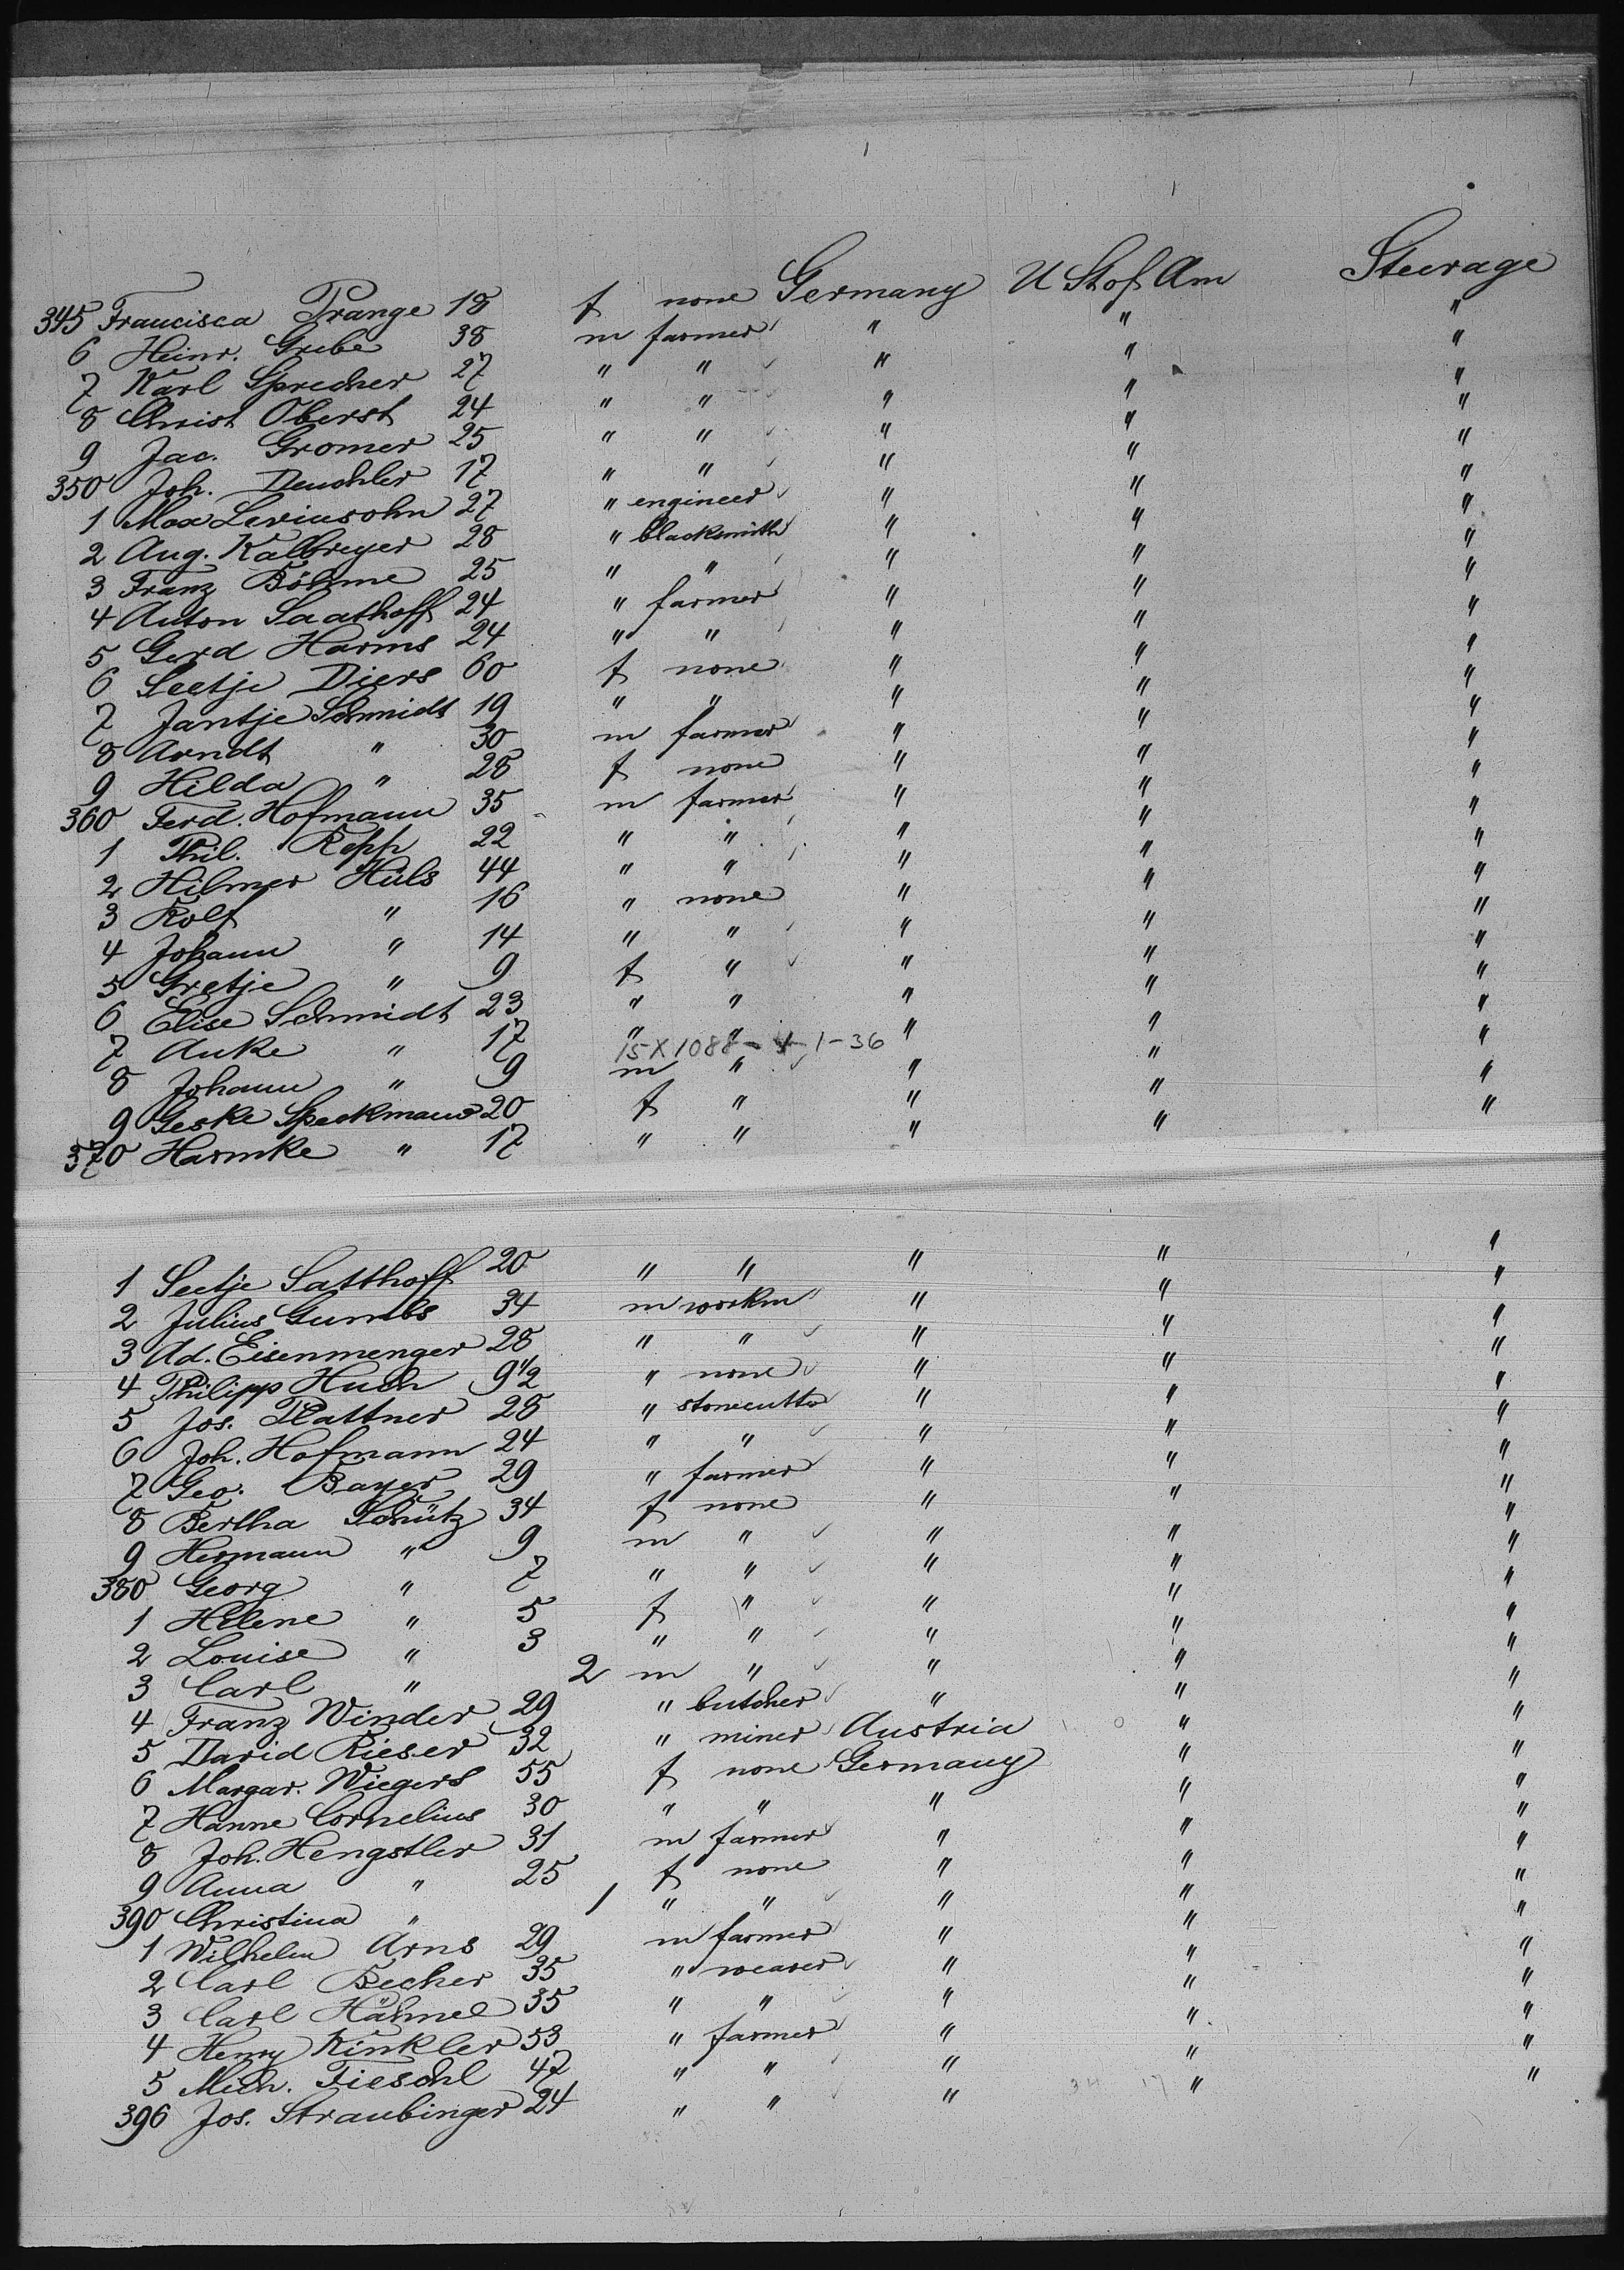 345 Francisca Prange 18 f none Germany U St of Am Steerage
6 Heinr. Grebe 38 m farmer " " "
7 Karl Sprecher 27 " " " " "
8 Christ Oberst 24 " " " " "
9 Jac. Gromer 25 " " " " "
350 Joh. Deuchler 17 " " " " "
1 Max Leviusohn 27 " engineer " " "
2 Aug. Kalbreyer 28 " blacksmith " " "
3 Franz Böhme 25 " " " " "
4 Anton Saathoff 24 " farmer " " "
5 Gerd Harms 24 " " " " "
6 Seetje Diers 60 f none " " "
7 Jantje Schmidt 19 " " " " "
8 Arndt " 30 m farmer " " "
9 Hilda " 28 f none " " "
360 Ferd. Hofmann 35 m farmer " " "
1 Phil. Repp 22 " " " " "
2 Hilmer Hüls 44 " " " " "
3 Rolf " 16 " none " " "
4 Johann " 14 " " " " "
5 Gretje " 9 f " " " "
6 Elise Schmidt 23 " " " " "
7 Auke " 17 " " " " "
15X1088-4-1-36
8 Johann " 9 m " " " "
9 Geske Speckmann 20 f " " " "
370 Harmke " 17 " " " " "
1 Seetje Satthoff 20 " " " " "
2 Julius Gumbs 34 m workm " " "
3 Ad. Eisenmenger 28 " " " " "
4 Philipp Huch 9 1/2 " none " " "
5 Jos. Plattner 28 " stonecutter " " "
6 Joh. Hofmann 24 " " " " "
7 Geo. Bayer 29 " farmer " " "
8 Bertha Schütz 34 f none " " "
9 Hermann " 9 m " " " "
380 Georg " 7 " " " " "
1 Helene " 5 f " " " "
2 Louise " 3 " " " " "
3 Carl " 2 m " " " "
4 Franz Winder 29 " butcher " " "
5 David Rieser 32 " miner Austria " "
6 Margar. Wiegers 55 f none Germany " "
7 Hanne Cornelius 30 " " " " "
8 Joh. Hengstler 31 m farmer " " "
9 Anna " 25 f none " " "
390 Christina " 1 " " " " "
1 Wilhelm Arns 29 m farmer " " "
2 Carl Becher 35 " weaver " " "
3 Carl Hähnel 35 " " " " "
4 Henry Kinkler 53 " farmer " " "
5 Mich. Fieschl 47 " " " " "
396 Jos. Straubinger 24 " " " " "